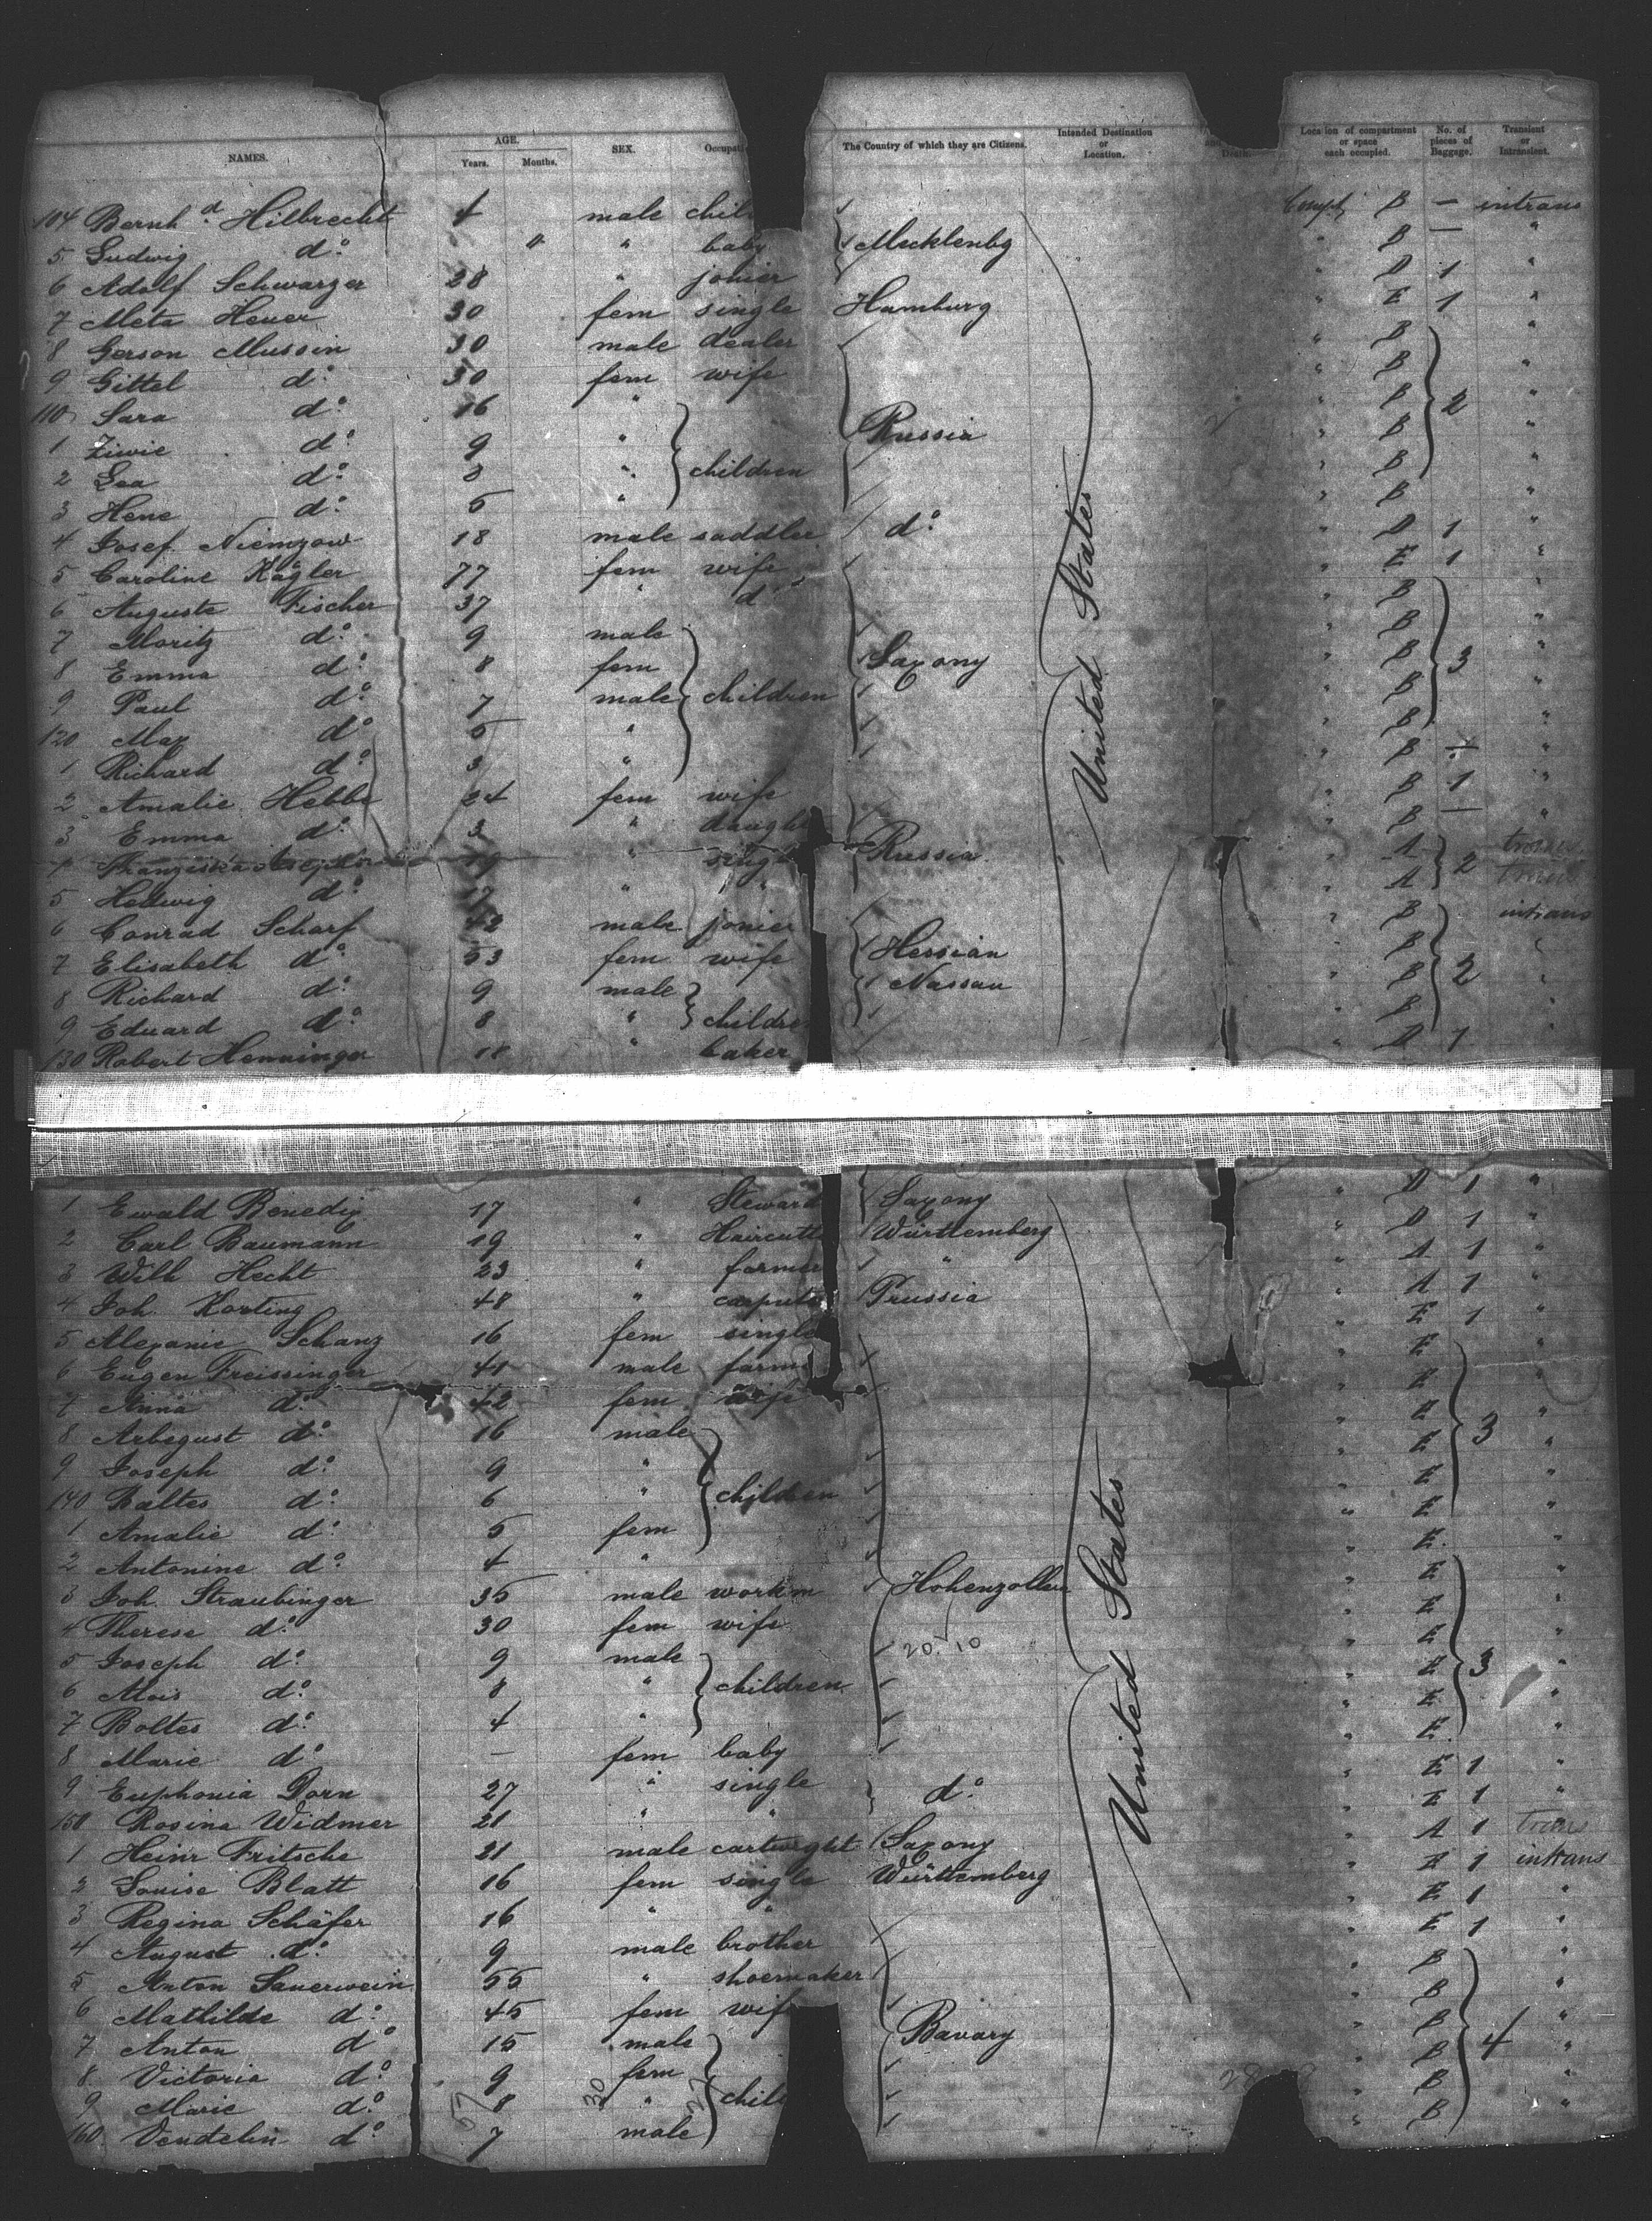 NAMES. AGE. Years. Months. SEX. The Country of which they are Citizens. Intended Destination or Location. Location of compartment or space each occupied. No. of pieces of Baggage. Transient or Intransient.
104 Bernhd Hilbrecht 4 male chil Compt B — intrans
5 Ludwig do " baby Mecklenbg " B — "
6 Adolf Schwarzer 28 " jonier " D 1 "
7 Meta Heuer 30 fem single Hamburg " E 1 "
8 Gerson Mussin 30 male dealer " B "
9 Gittel do 30 fem wife " B "
110 Sara do 16 " " B 2 "
1 Ziwie do 9 " Russia " B "
2 Lea do 8 " children " B "
3 Hene do 5 " " B "
4 Josef Niemzow 18 male saddler do " D 1 "
5 Caroline Kägler 77 fem wife " E 1 "
6 Auguste Fischer 37 " do " B "
7 Moritz do 9 male " B "
8 Emma do 8 fem Saxony " B 3 "
9 Paul do 7 male children " B "
120 Max do 5 " " B "
1 Richard do 3 " " B — "
2 Amalie Hebbe 24 fem wife " B 1 "
3 Emma do 3 " daugh " B — "
4 Franziska 19 " singl Russia " A 2 trans
5 Hedwig do 17 " " " A trans
6 Conrad Scharf 42 male jonier " B intrans
7 Elisabeth do 53 fem wife Hessian " B "
8 Richard do 9 male Nassau " B 2 "
9 Eduard do 8 " childre " B "
130 Robert Henninger 18 " baker " D 1
United States
1 Ewald Benedix 17 " Steward Saxony " D 1 "
2 Carl Baumann 19 " Haircutt Württemberg " D 1 "
3 Wilh Hecht 23 " farmer " " A 1 "
4 Joh. Korting 48 " Prussia " A 1 "
5 Alexanie Schanz 16 fem single " E 1 "
6 Eugen Freissinger 41 male farm " E "
7 Anna do 42 fem wife " E "
8 Arbegust do 16 male " E 3 "
9 Joseph do 9 " " E "
140 Baltes do 6 " children " E "
1 Amalie do 5 fem " E "
2 Antonine do 4 " " E "
3 Joh. Straubinger 35 male workm Hohenzollern " E "
4 Therese do 30 fem wife " E "
20. 10
5 Joseph do 9 male " E "
6 Alois do 8 " children " E 3 "
7 Boltes do 4 " " E "
8 Marie do — fem baby " E "
9 Euphonia Dorn 27 " single do " E 1 "
150 Rosina Widmer 21 " " " E 1 "
1 Heinr Fritsche 21 male cartwright Saxony " A 1 trans
2 Louise Blatt 16 fem single Württemberg " E 1 intrans
3 Regina Schäfer 16 " " " E 1 "
4 August do 9 male brother " E 1 "
5 Anton Sauerwein 55 " shoemaker " B "
6 Mathilde do 45 fem wife " B "
7 Anton do 15 male Bavary " B 4 "
8 Victoria do 9 fem " B "
9 Marie do 8 " child " B "
160 Vendelin do 7 male " B "
United States
57 30